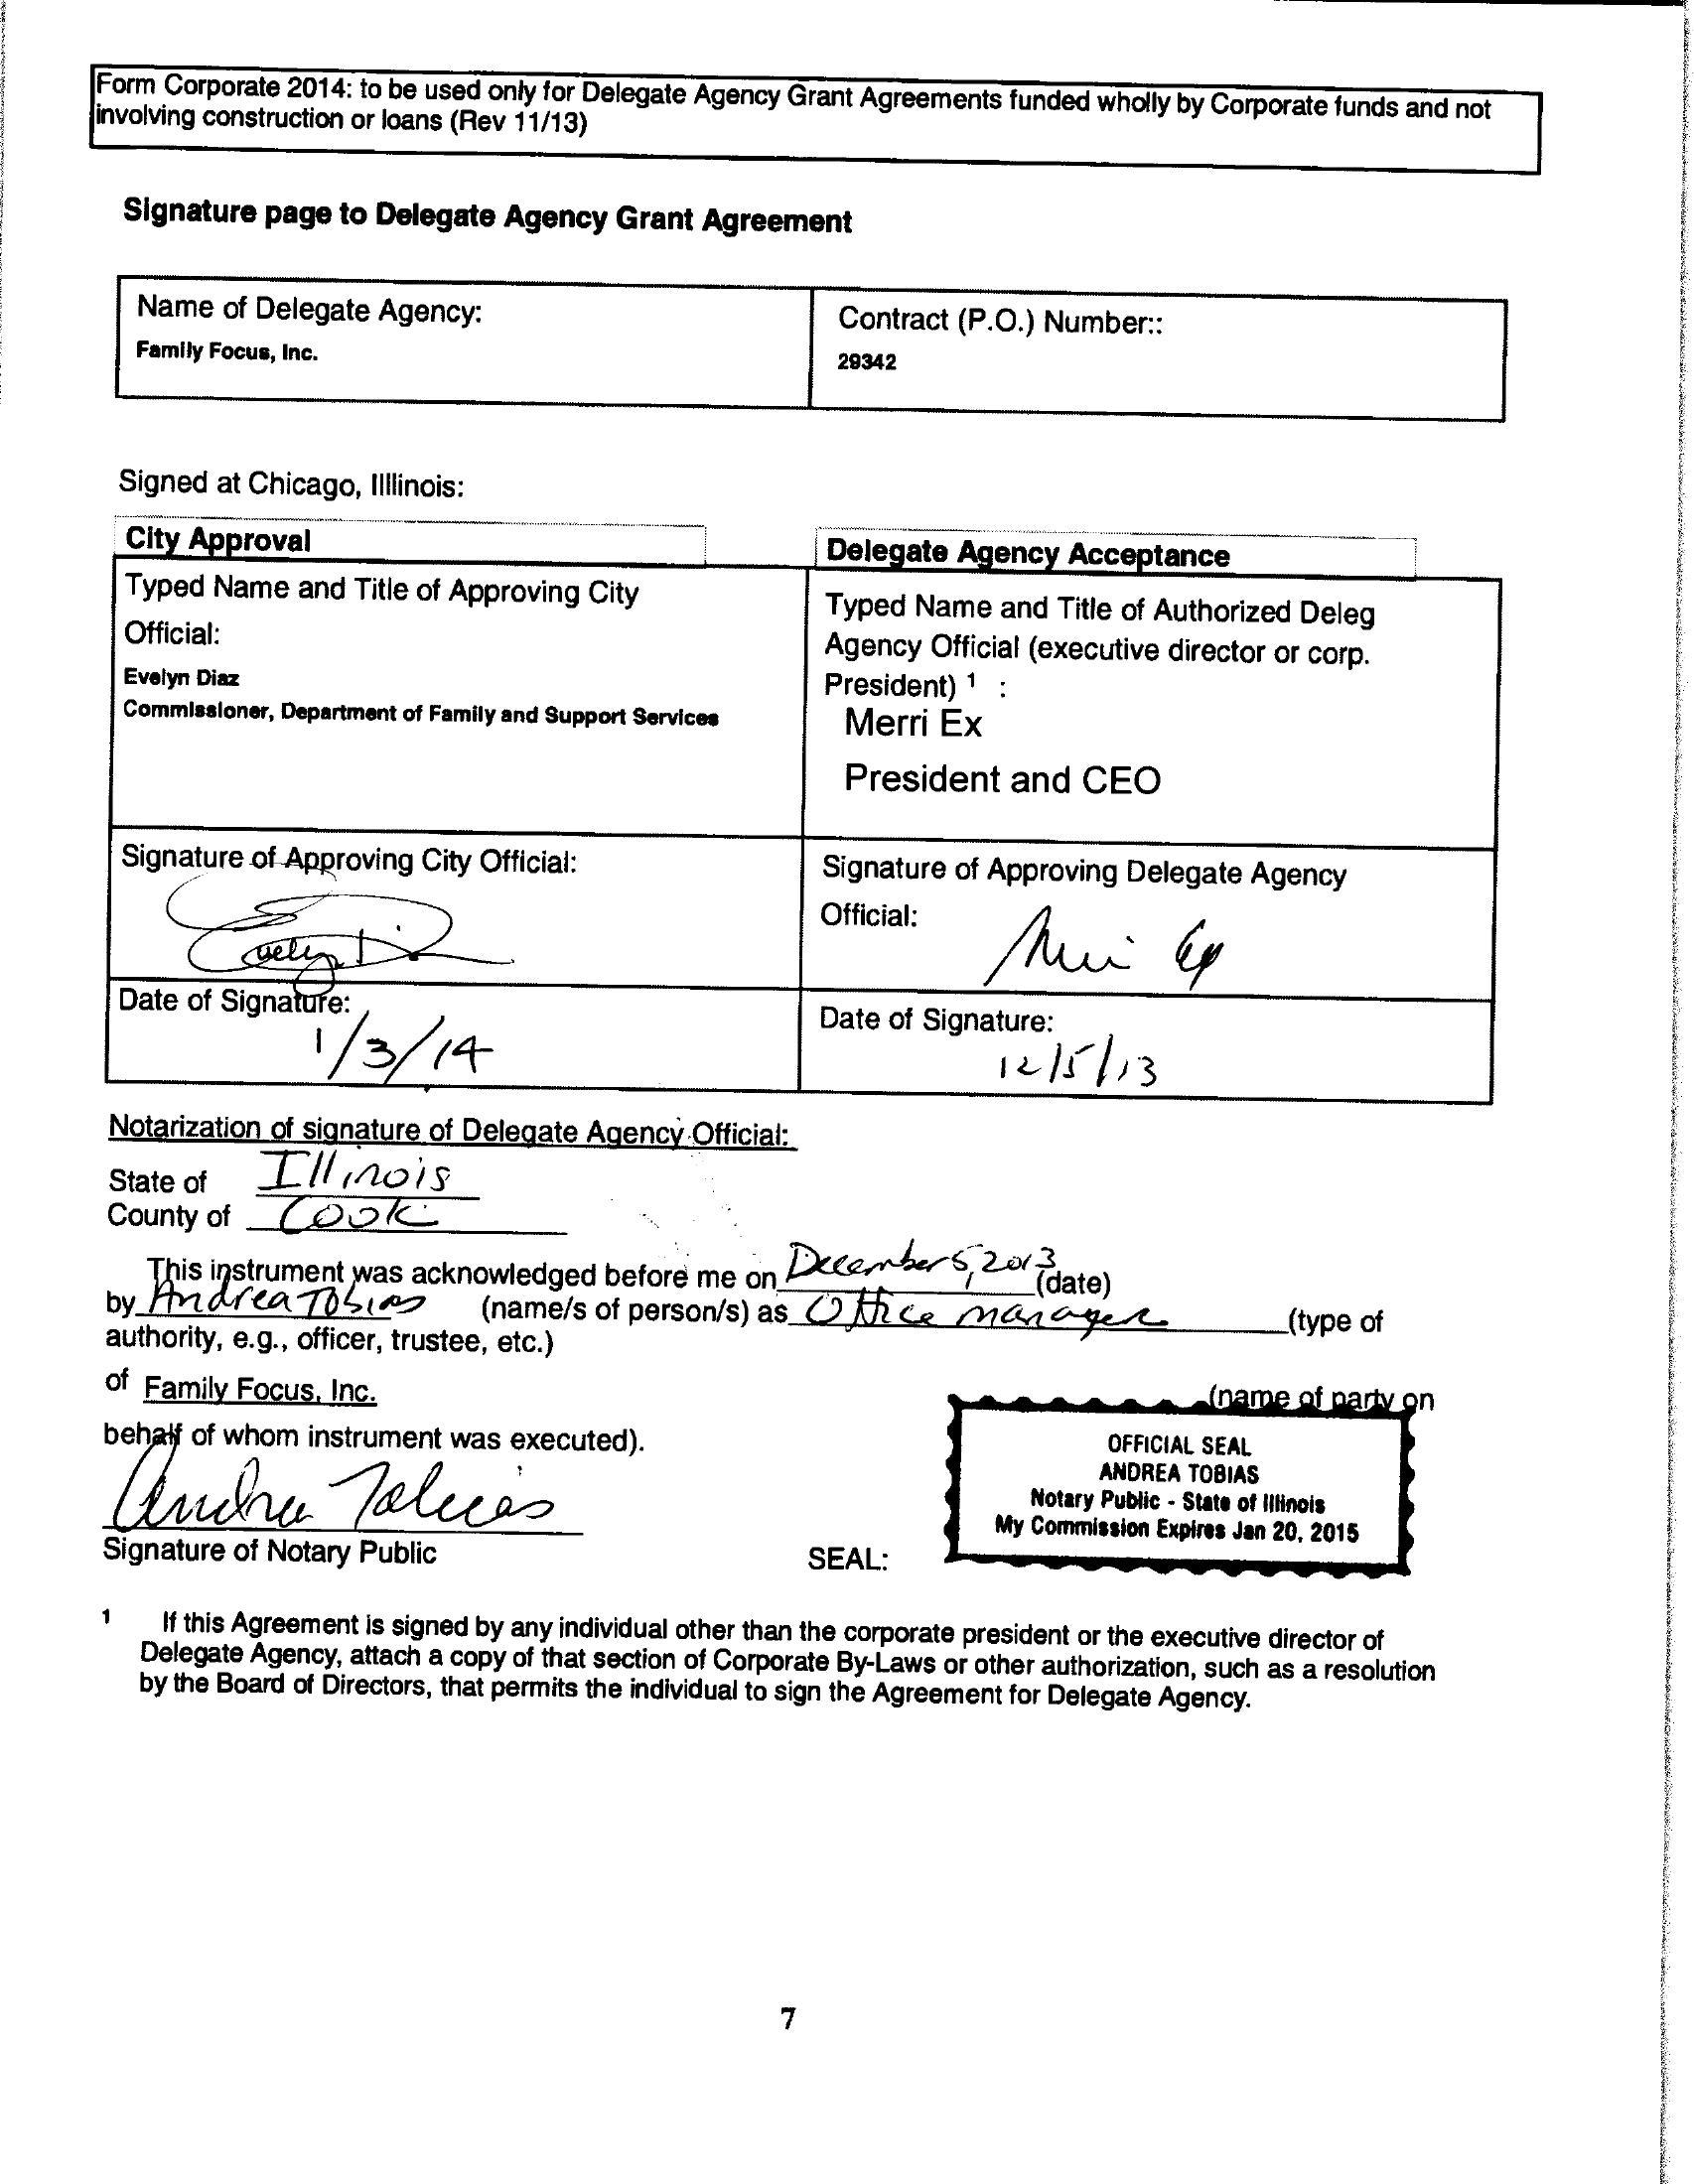 Form Corporate 2014: to be used only for Delegate Agency Grant Agreements funded wholly by Corporate funds and not
involving construction or loans (Rev 11/13)
Signature page to Delegate Agency Grant Agreement
Name of Delegate Agency:
Family Focus, Inc.
Contract (P.O.) Number::
29342
Signed at Chicago, Illlinois:
City Approval
Typed Name and Title of Approving City
Official:
Evelyn Diaz
Commissioner, Department of Family and Support Services
Delegate Agency Acceptance
Typed Name and Title of Authorized Deleg
Agency Official (executive director or corp.
President) 1 :
Merri Ex
President and CEO
Signature of Approving City Official:
Evelyn Di
Signature of Approving Delegate Agency
Official:
Merri Ex
Date of Signature:
1/3/14
Date of Signature:
12/5/13
Notarization of signature of Delegate Agency Official:
State of Illinois
County of Cook
This instrument was acknowledged before me on December 5, 2013 (date)
by Andrea Tobias (name/s of person/s) as Office manager (type of
authority, e.g., officer, trustee, etc.)
of Family Focus, Inc. (name of party on
behalf of whom instrument was executed).
Andrea Tobias
Signature of Notary Public
SEAL:
OFFICIAL SEAL
ANDREA TOBIAS
Notary Public - State of Illinois
My Commission Expires Jan 20, 2015
1 If this Agreement is signed by any individual other than the corporate president or the executive director of
Delegate Agency, attach a copy of that section of Corporate By-Laws or other authorization, such as a resolution
by the Board of Directors, that permits the individual to sign the Agreement for Delegate Agency.
7